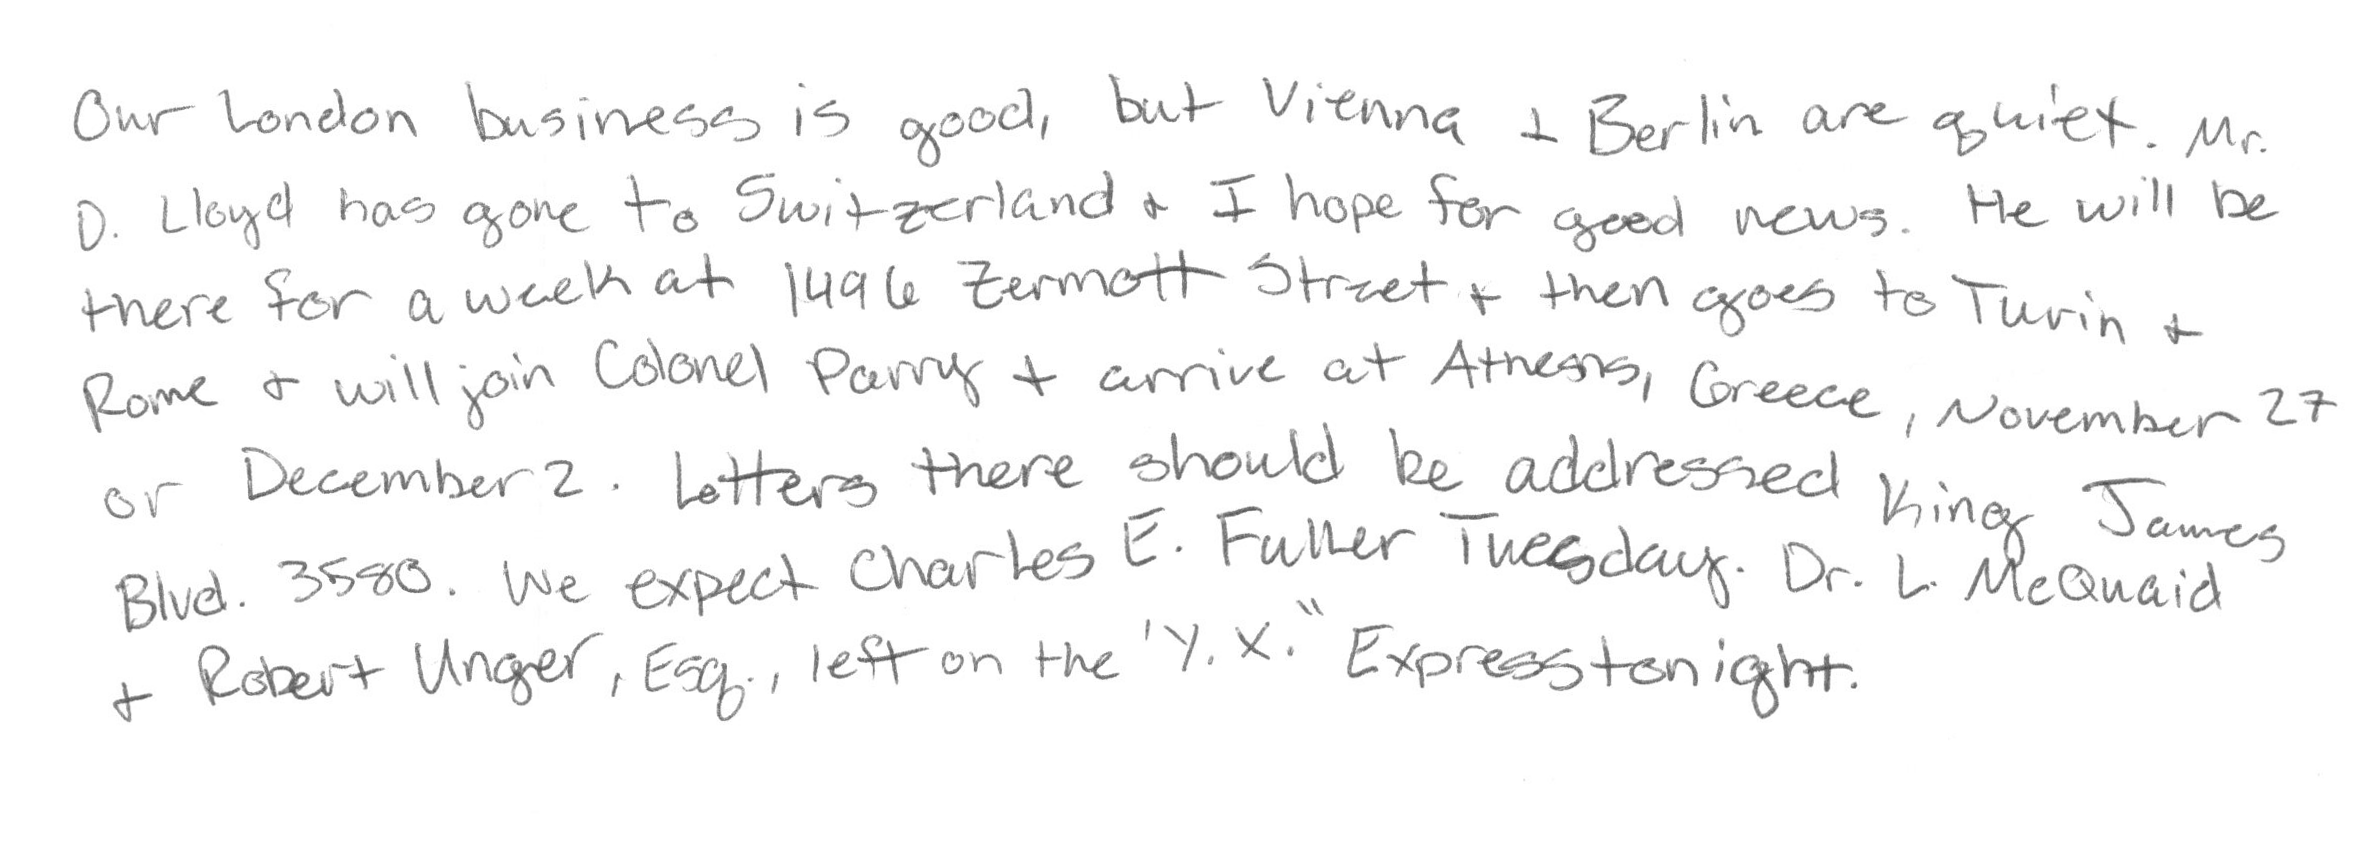 Our London business is good, but Vienna + Berlin are quiet. Mr.
D. Lloyd has gone to Switzerland + I hope for good news. He will be
there for a week at 1496 Zermott Street + then goes to Turin +
Rome + will join Colonel Parry + arrive at Athens, Greece, November 27
or December 2. Letters there should be addressed King James
Blvd. 3580. We expect Charles E. Fuller Tuesday. Dr. L. McQuaid
+ Robert Unger, Esq., left on the 'Y. X." Express tonight.